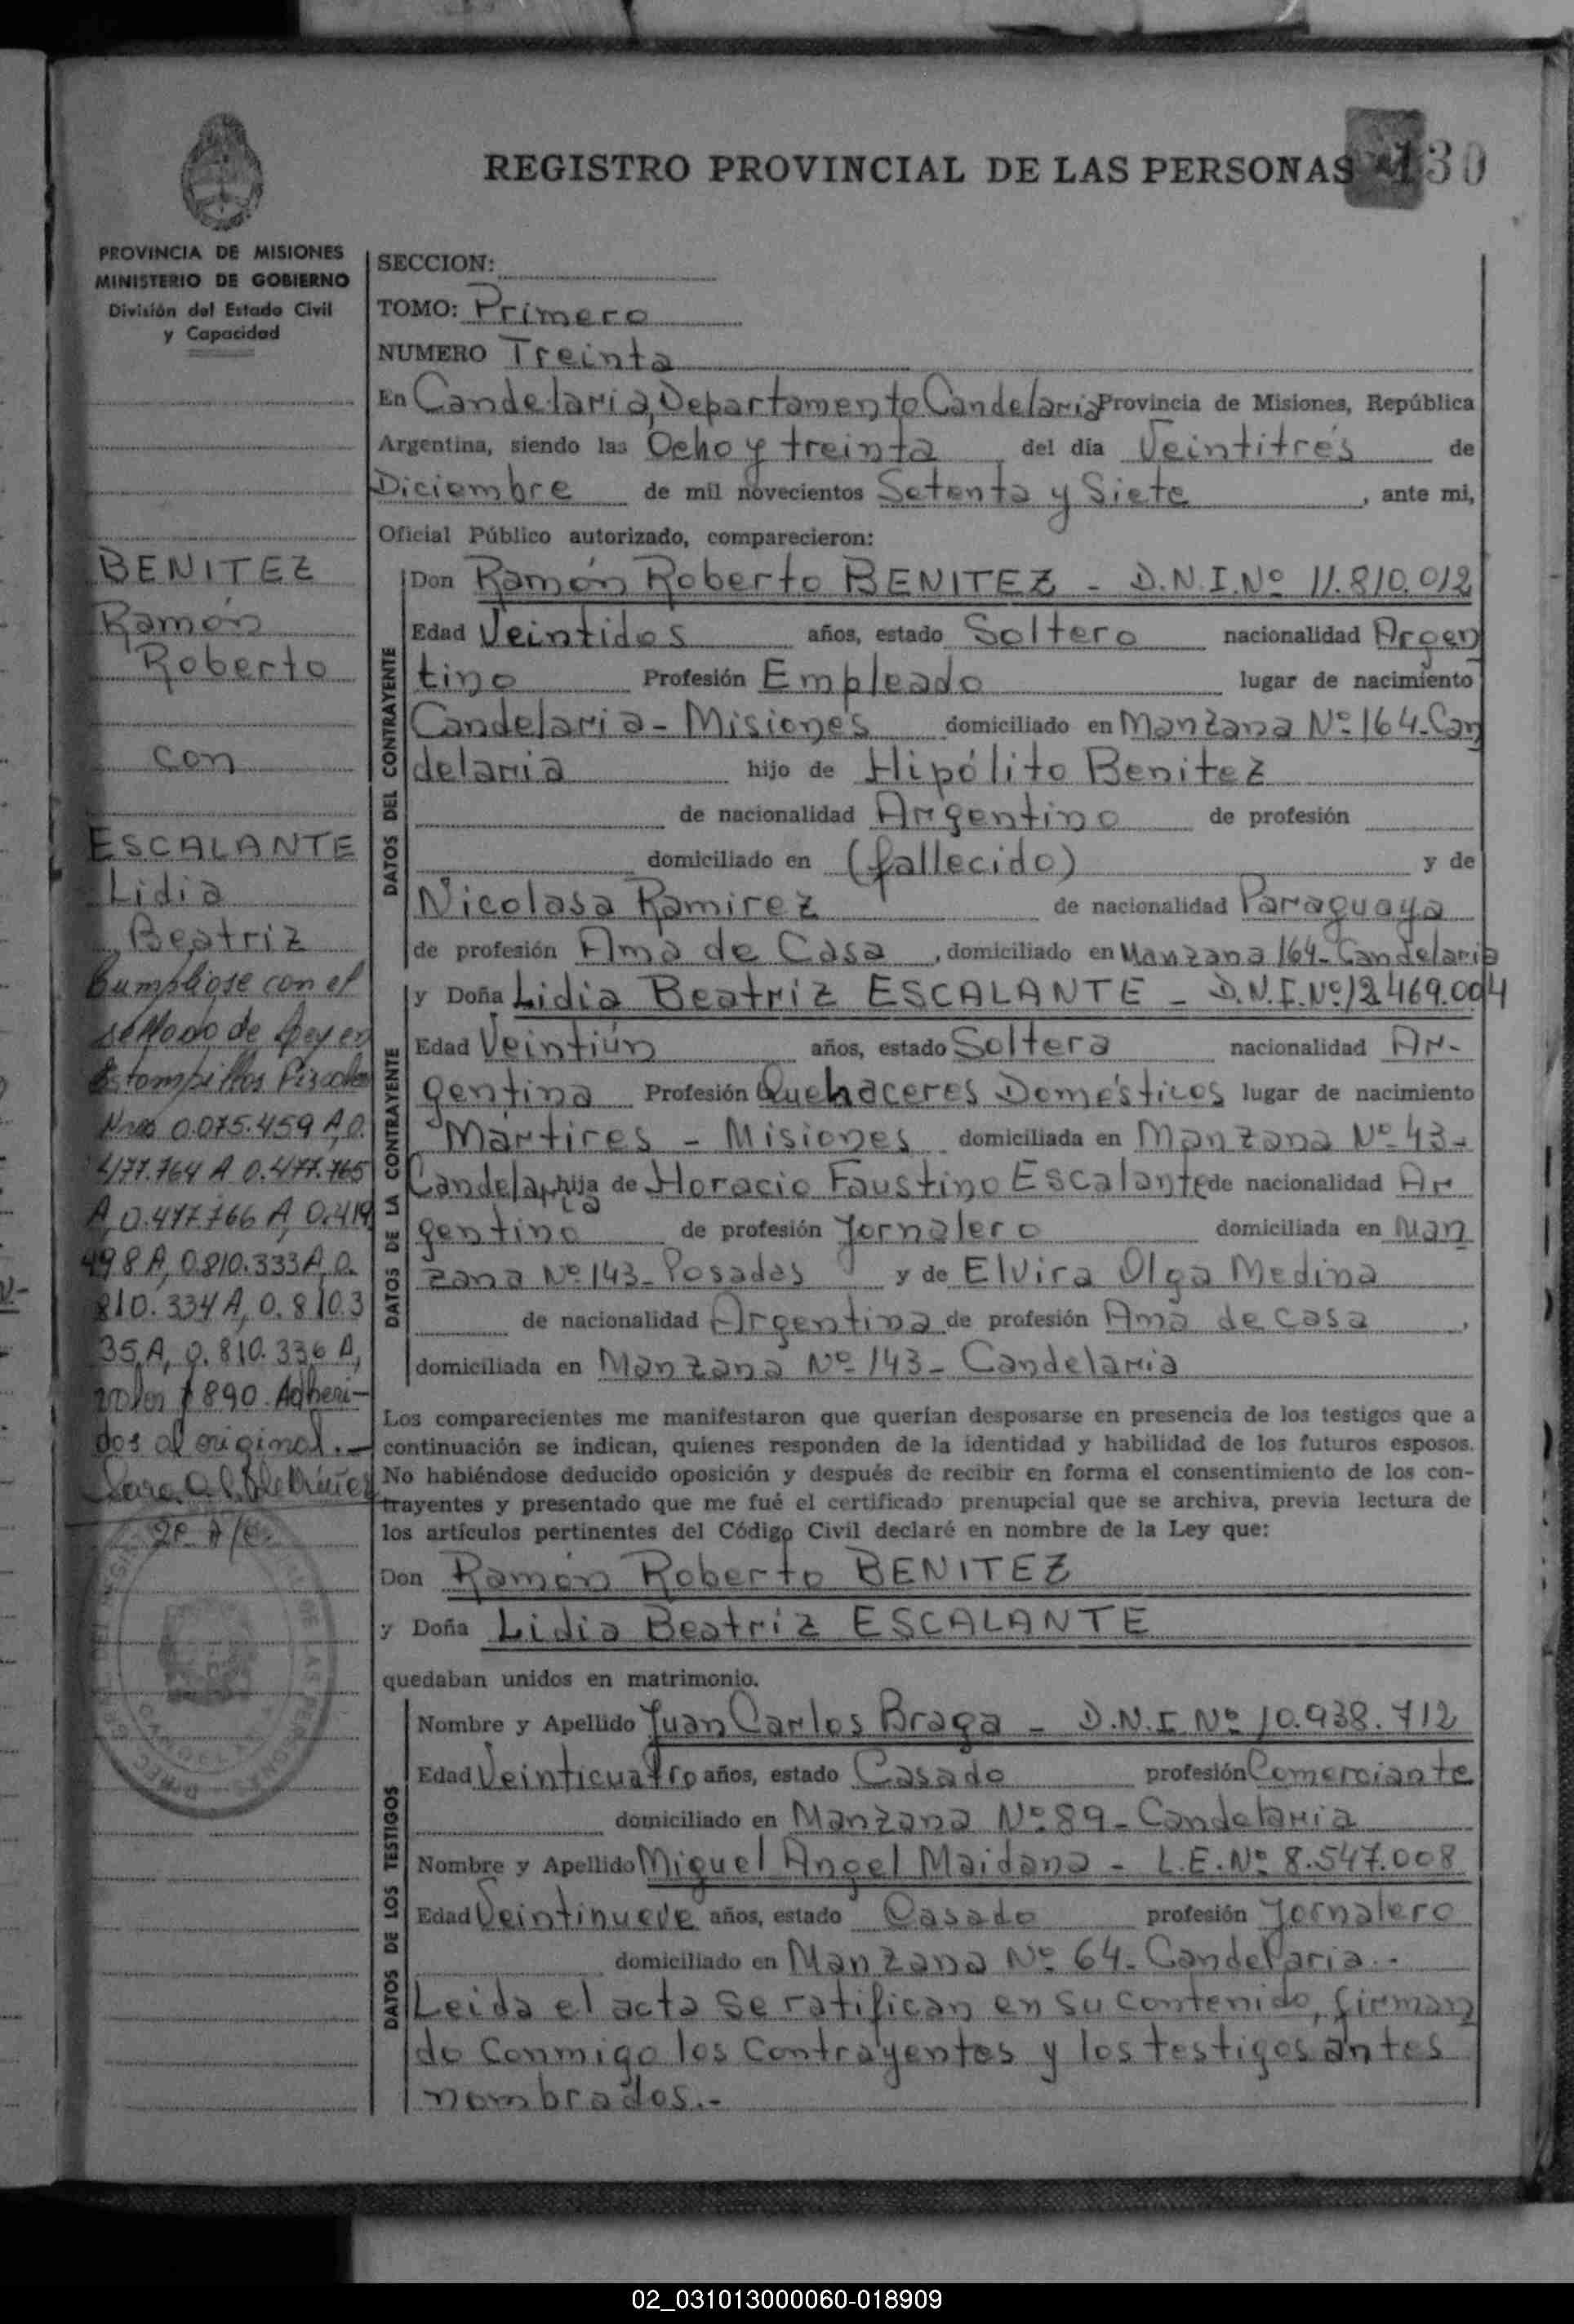 REGISTRO PROVINCIAL DE LAS PERSONAS
130
PROVINCIA DE MISIONES
MINISTERIO DE GOBIERNO
División del Estado Civil
y Capacidad
BENITEZ
Ramón
Roberto
con
ESCALANTE
Lidia
Beatriz
Cumpliose con el
sellado de Ley en
Estampillas Fiscales
Nros 0.075.459 A, 0.
477.764 A 0.477.765
A, 0.477.766 A, 0.419
498 A, 0.810.333 A, 0.
810.334 A, 0.810.3
35 A, 0.810.336 A,
valor $ 890. Adheri-
dos al original.-
SECCION:
TOMO: Primero
NUMERO Treinta
En Candelaria, Departamento Candelaria Provincia de Misiones, República
Argentina, siendo las Ocho y treinta del día Veintitrés de
Diciembre de mil novecientos Setenta y Siete, ante mi,
Oficial Público autorizado, comparecieron:
DATOS DEL CONTRAYENTE
Don Ramón Roberto BENITEZ - D.N.I. Nº 11.810.012
Edad Veintidos años, estado Soltero nacionalidad Argen
tino Profesión Empleado lugar de nacimiento
Candelaria - Misiones domiciliado en Manzana Nº 164-Can
delaria hijo de Hipólito Benitez
de nacionalidad Argentino de profesión
domiciliado en (fallecido) y de
Nicolasa Ramirez de nacionalidad Paraguaya
de profesión Ama de Casa, domiciliado en Manzana 164-Candelaria
DATOS DE LA CONTRAYENTE
y Doña Lidia Beatriz ESCALANTE - D.N.I. Nº 12.469.004
Edad Veintiún años, estado Soltera nacionalidad Ar-
gentina Profesión Quehaceres Domésticos lugar de nacimiento
Mártires - Misiones domiciliada en Manzana Nº 43-
Candelaria hija de Horacio Faustino Escalante de nacionalidad Ar
gentino de profesión Jornalero domiciliada en Man
zana Nº 143- Posadas y de Elvira Olga Medina
de nacionalidad Argentina de profesión Ama de casa,
domiciliada en Manzana Nº 143- Candelaria
Los comparecientes me manifestaron que querían desposarse en presencia de los testigos que a
continuación se indican, quienes responden de la identidad y habilidad de los futuros esposos.
No habiéndose deducido oposición y después de recibir en forma el consentimiento de los con-
trayentes y presentado que me fué el certificado prenupcial que se archiva, previa lectura de
los artículos pertinentes del Código Civil declaré en nombre de la Ley que:
Don Ramón Roberto BENITEZ
y Doña Lidia Beatriz ESCALANTE
quedaban unidos en matrimonio.
DATOS DE LOS TESTIGOS
Nombre y Apellido Juan Carlos Braga - D.N.I. Nº 10.938.712
Edad Veinticuatro años, estado Casado profesión Comerciante
domiciliado en Manzana Nº 89- Candelaria
Nombre y Apellido Miguel Angel Maidana - L.E. Nº 8.547.008
Edad Veintinueve años, estado Casado profesión Jornalero
domiciliado en Manzana Nº 64- Candelaria.-
Leida el acta se ratifican en su contenido, firman
do conmigo los contrayentes y los testigos antes
nombrados.-
02_031013000060-018909